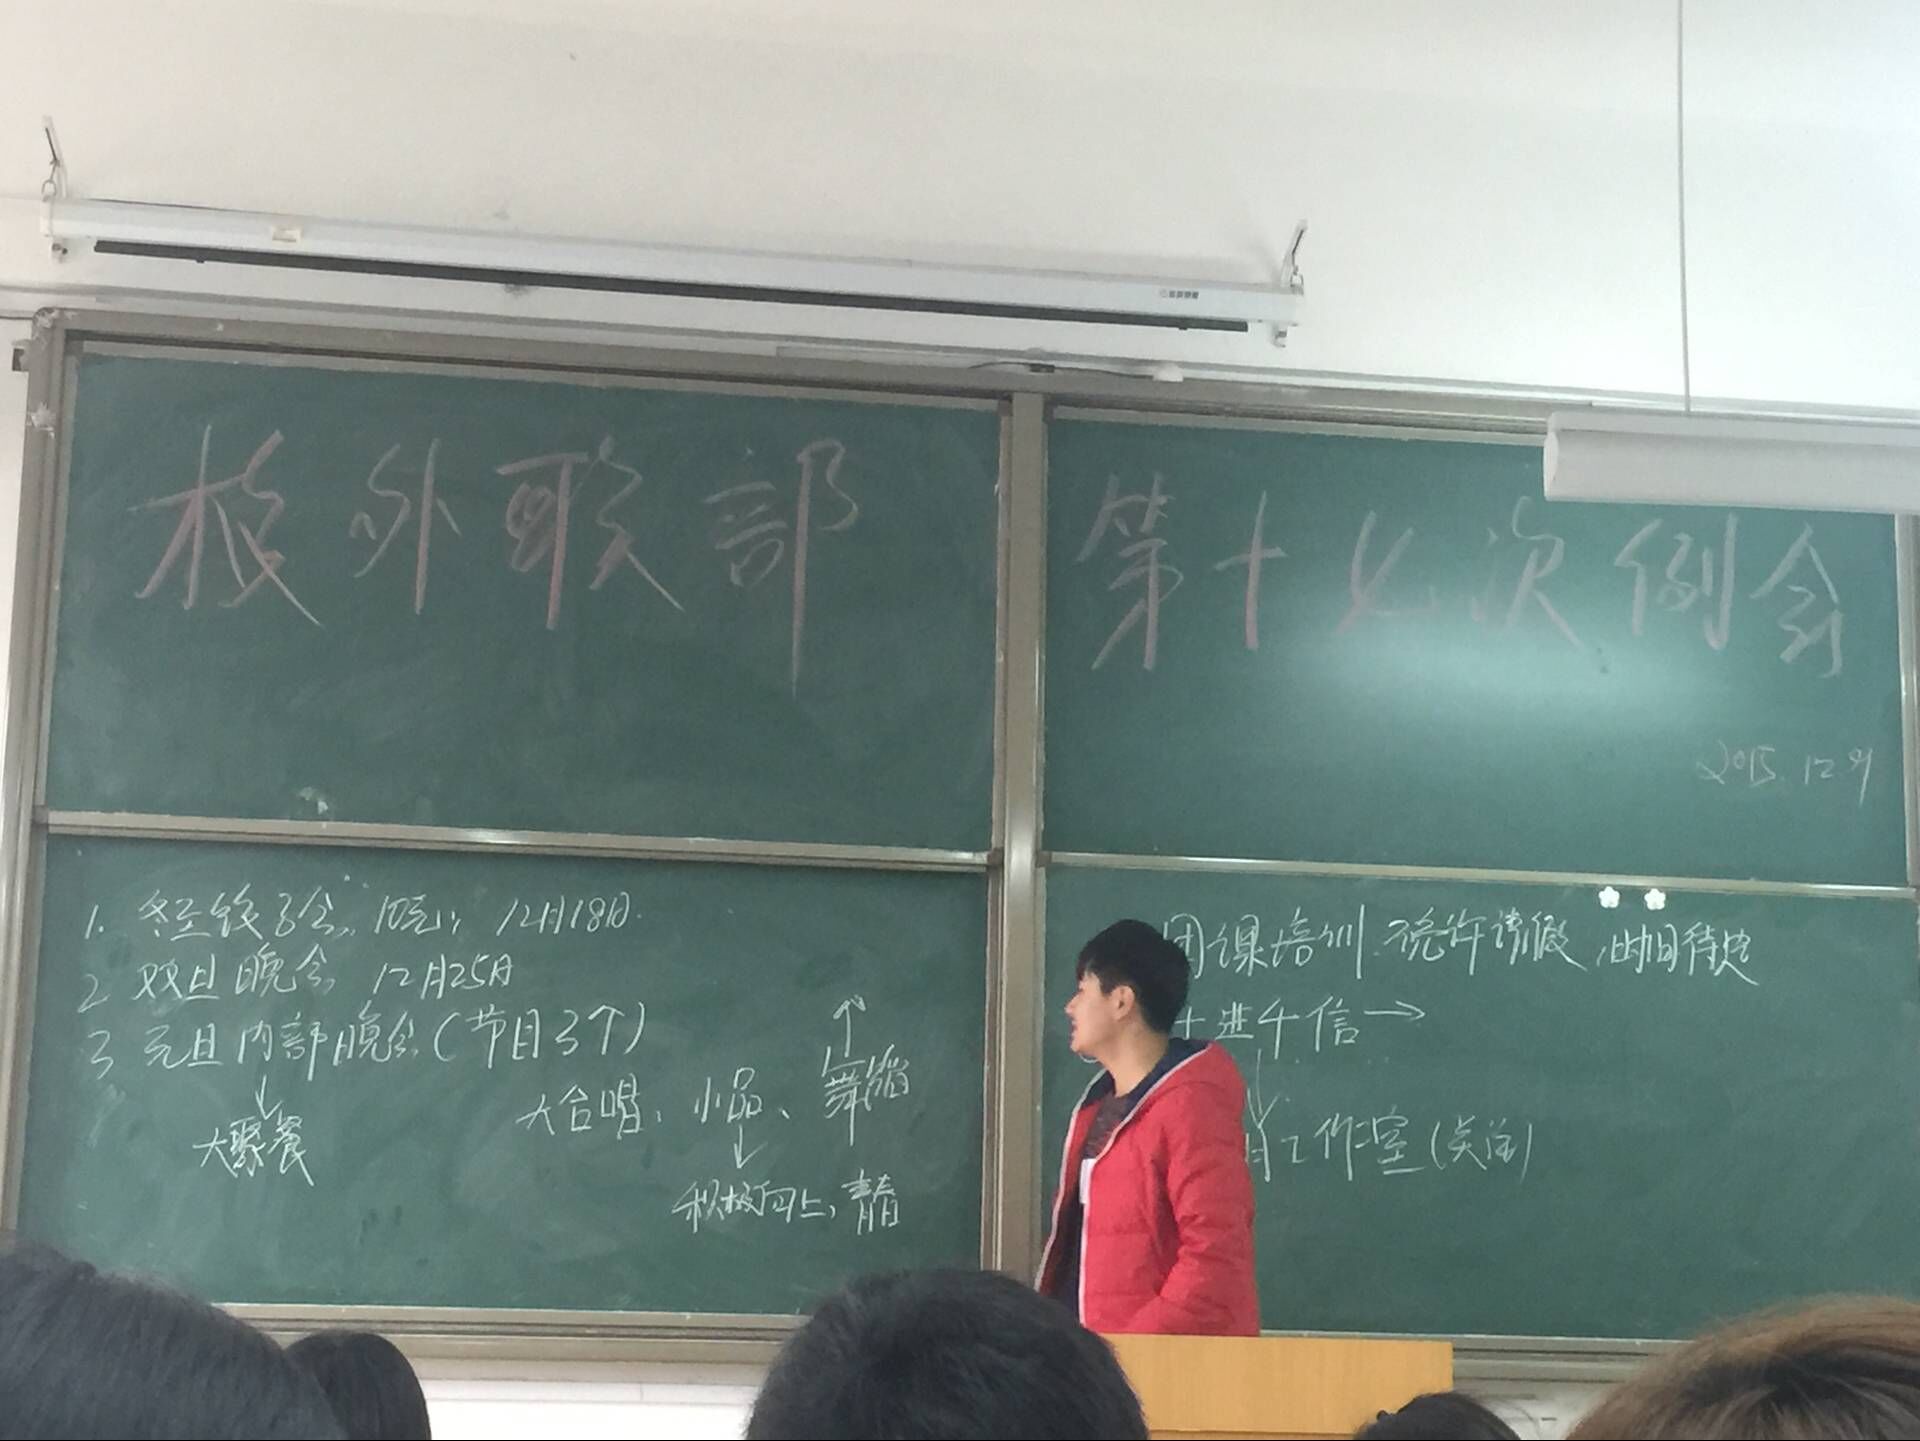 校外联部
第十七次例会
2015.12.9
1. 冬至饺子会 12月18日.
2 双旦晚会 12月25日
3 元旦内部晚会(节目3个)
↓
大聚餐
大合唱、小品、舞蹈
↓
积极向上,青春
团课培训 不允许请假,时间待定
进千信→
工作室(关注)